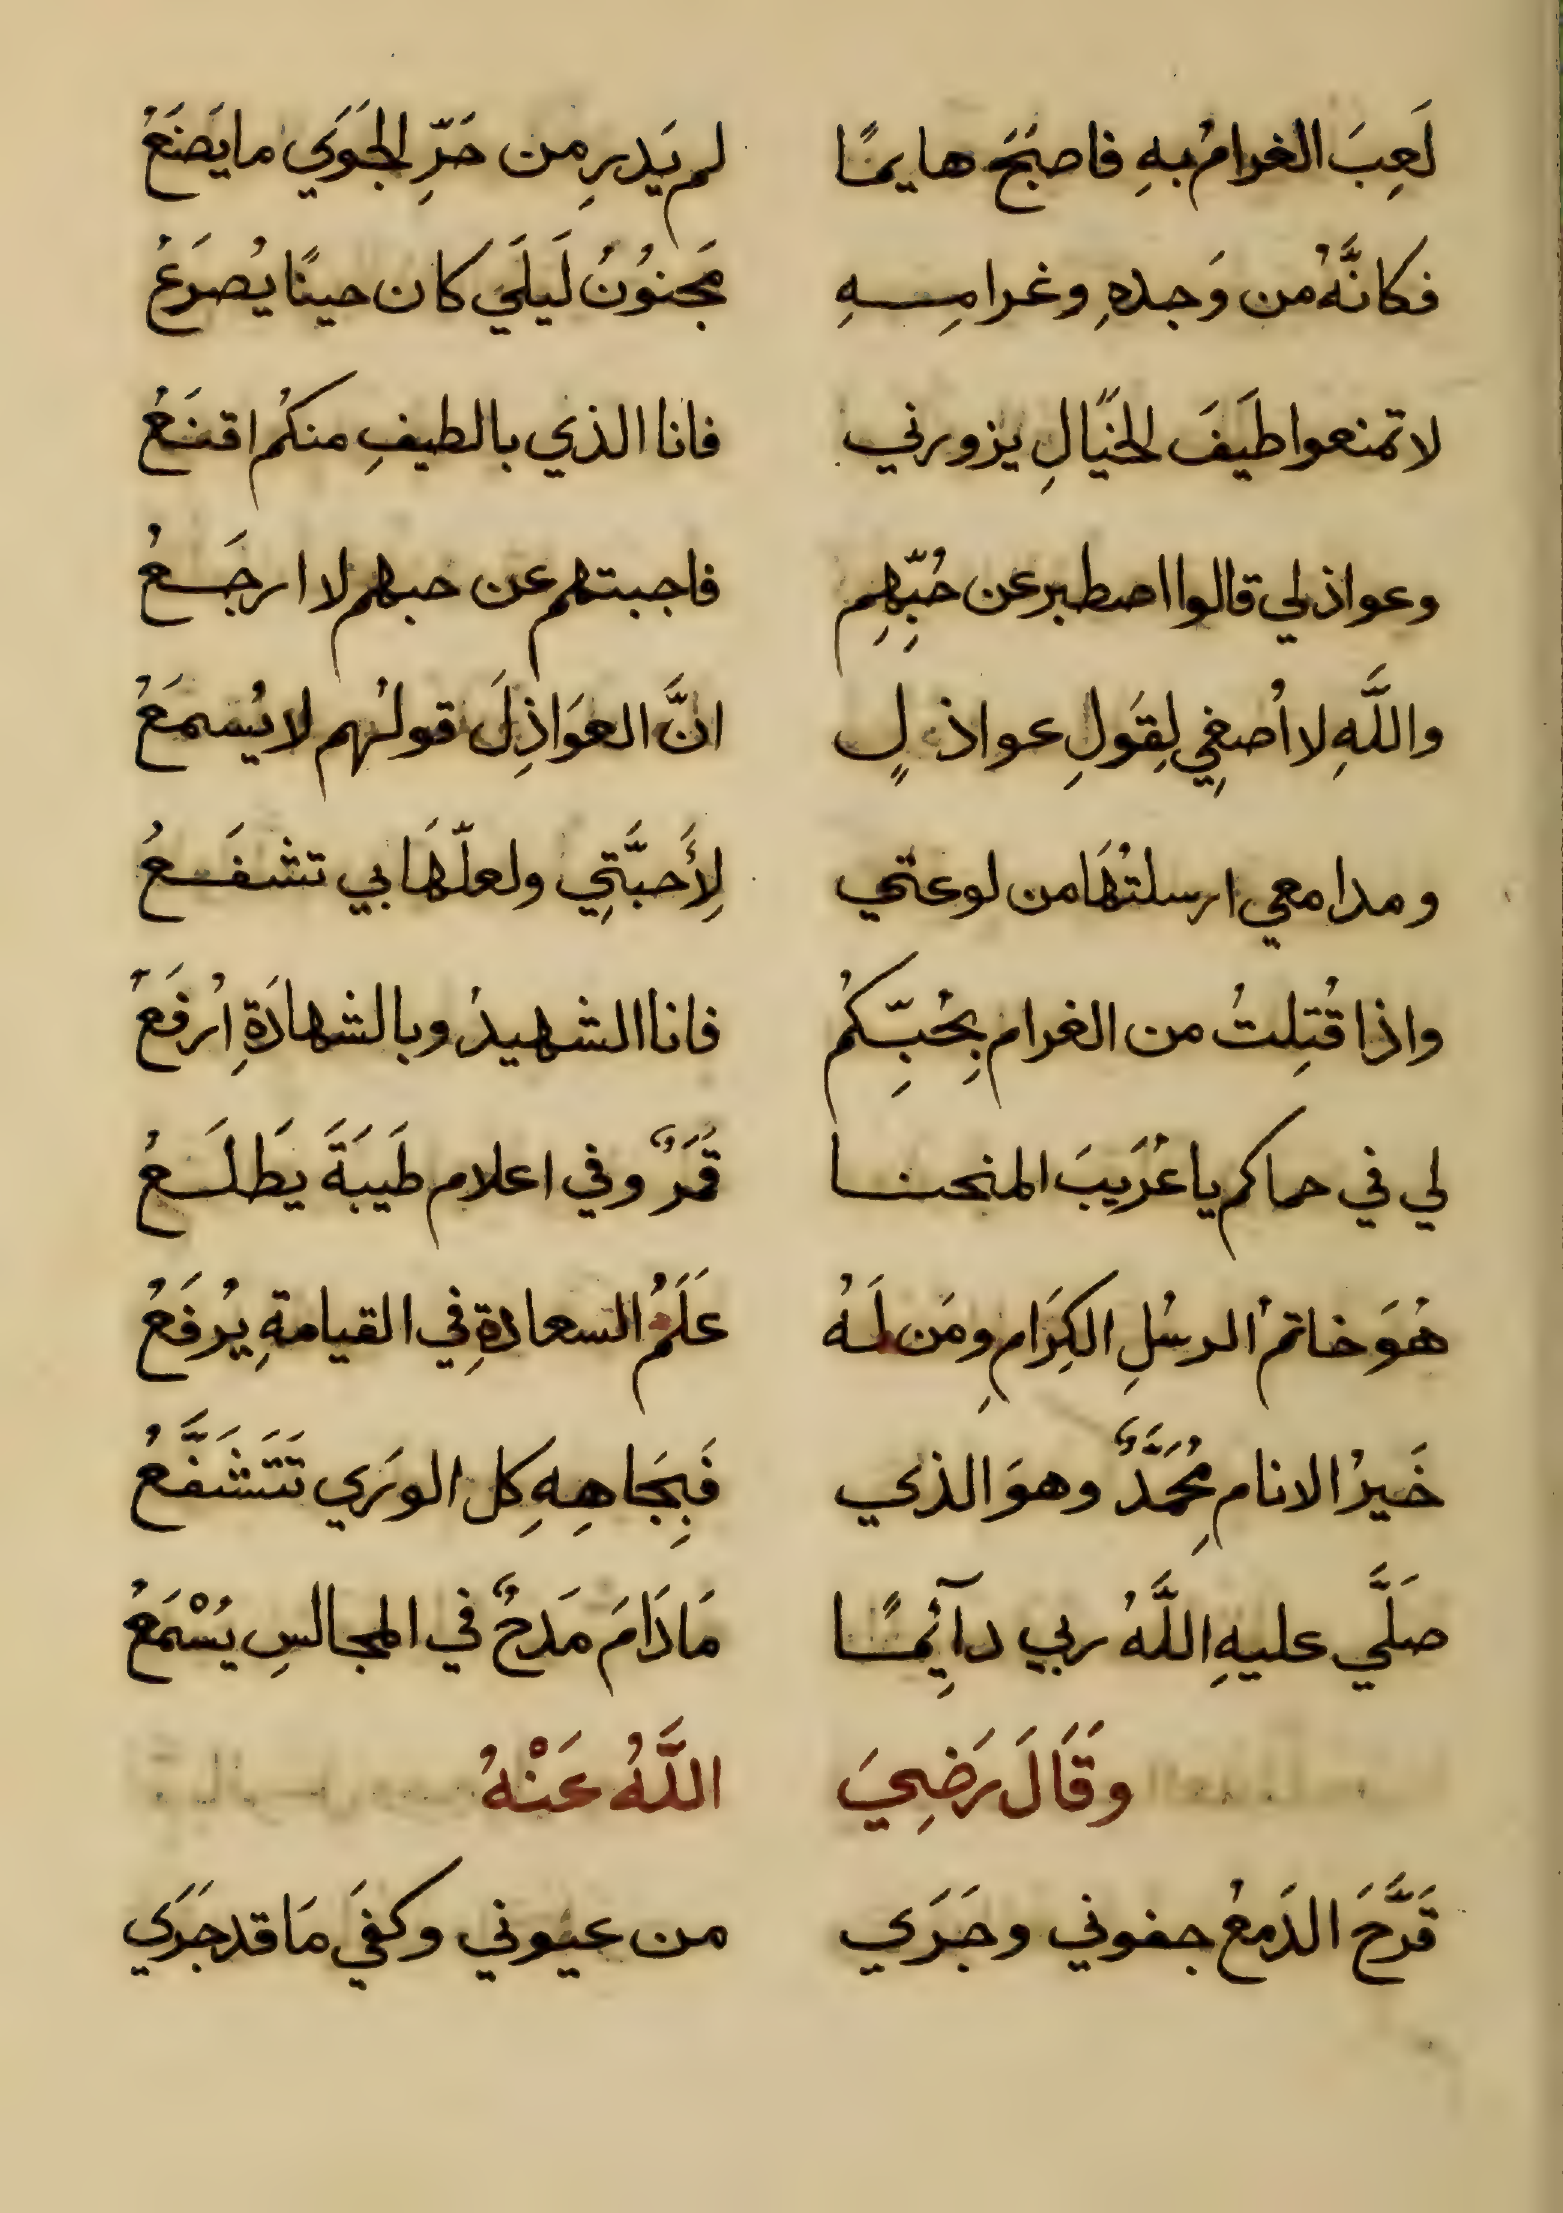 لَعِبَ الغرامُ بهِ فاصبَحَ هايمًا لم يَدرِ من حَرِّ الجَوَي ما يَصنَعُ
فكانَّهُ من وَجدهِ وغرامِهِ مَجنوُنُ لَيلَي كان حينًا يُصرَعُ
لا تمنعوا طَيفَ الخيَالِ يزورني فانا الذي بالطيفِ منكُم اقنَعُ
وعواذلي قالوا اصطبر عن حُبِّهِم فاجبتهم عن حبهم لا ارجَعُ
واللَّهِ لا أُصغِي لِقَولِ عواذلٍ انَّ العوَاذِلَ قولُهم لا يُسمَعُ
ومدامعي ارسلتُهَا من لوعتي لِأَحبَّتِي ولعلّهَا بي تشفَعُ
واذا قُتِلتُ من الغرام بِحُبِّكُم فانا الشهيدُ وبالشهادَةِ اُرفَعُ
لي في حماكم يا عُرَيبَ المنحنا قَمَرٌ وفي اعلام طَيبَةَ يَطلَعُ
هُوَ خاتمُ الرسُلِ الكِرَامِ ومَن لَهُ عَلَمُ السعادةِ في القيامةِ يُرفَعُ
خَيرُ الانام مُحِمَّدٌ وهوَ الذي فَبِجَاهِهِ كِل الورَي تَتَشَفَّعُ
صَلَّي عليهِ اللَّهُ ربي دآئِمًا مَا دَامَ مَدحٌ في المجالسِ يُسْمَعُ
وَقَالَ رَضِيَ اللَّهُ عَنْهُ
قَرَّحَ الدَمعُ جفوني وجَرَي من عيوني وكفَي مَا قد جَرَي